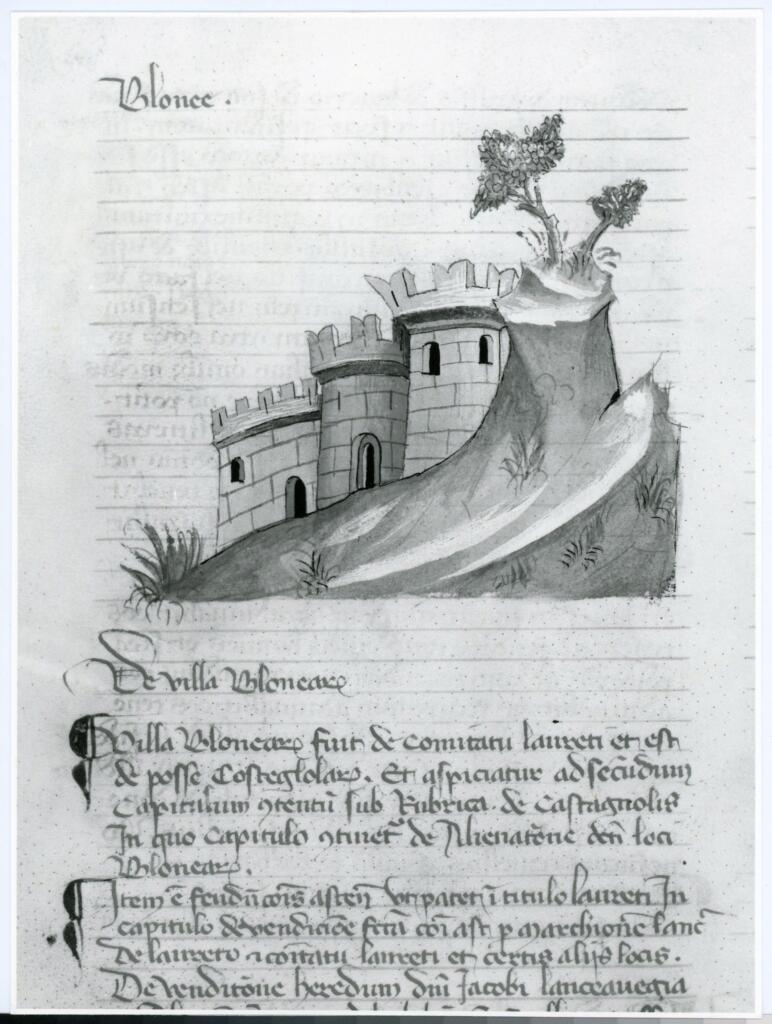 Blonee.
De villa Blonearꝝ
Villa Blonearꝝ fuit de Comitatu laureti et est
de posse Costeglolarꝝ. Et aspiciatur ad secūdum
Capitulum ꝯtentū sub Rubrica de Castagnolis
In quo Capitulo ꝯtinetr de Alienatōne dcti loci
Blonearꝝ.
Item ē feudū cōis asten̄ vt patet ī titulo laureti In
capitulo de vendicione fctā cōi ast p marchionē lanc̄
De laureto ⁊ comitatu laureti et certis alijs locis.
De venditōne heredum dnī Jacobi lanceauegia